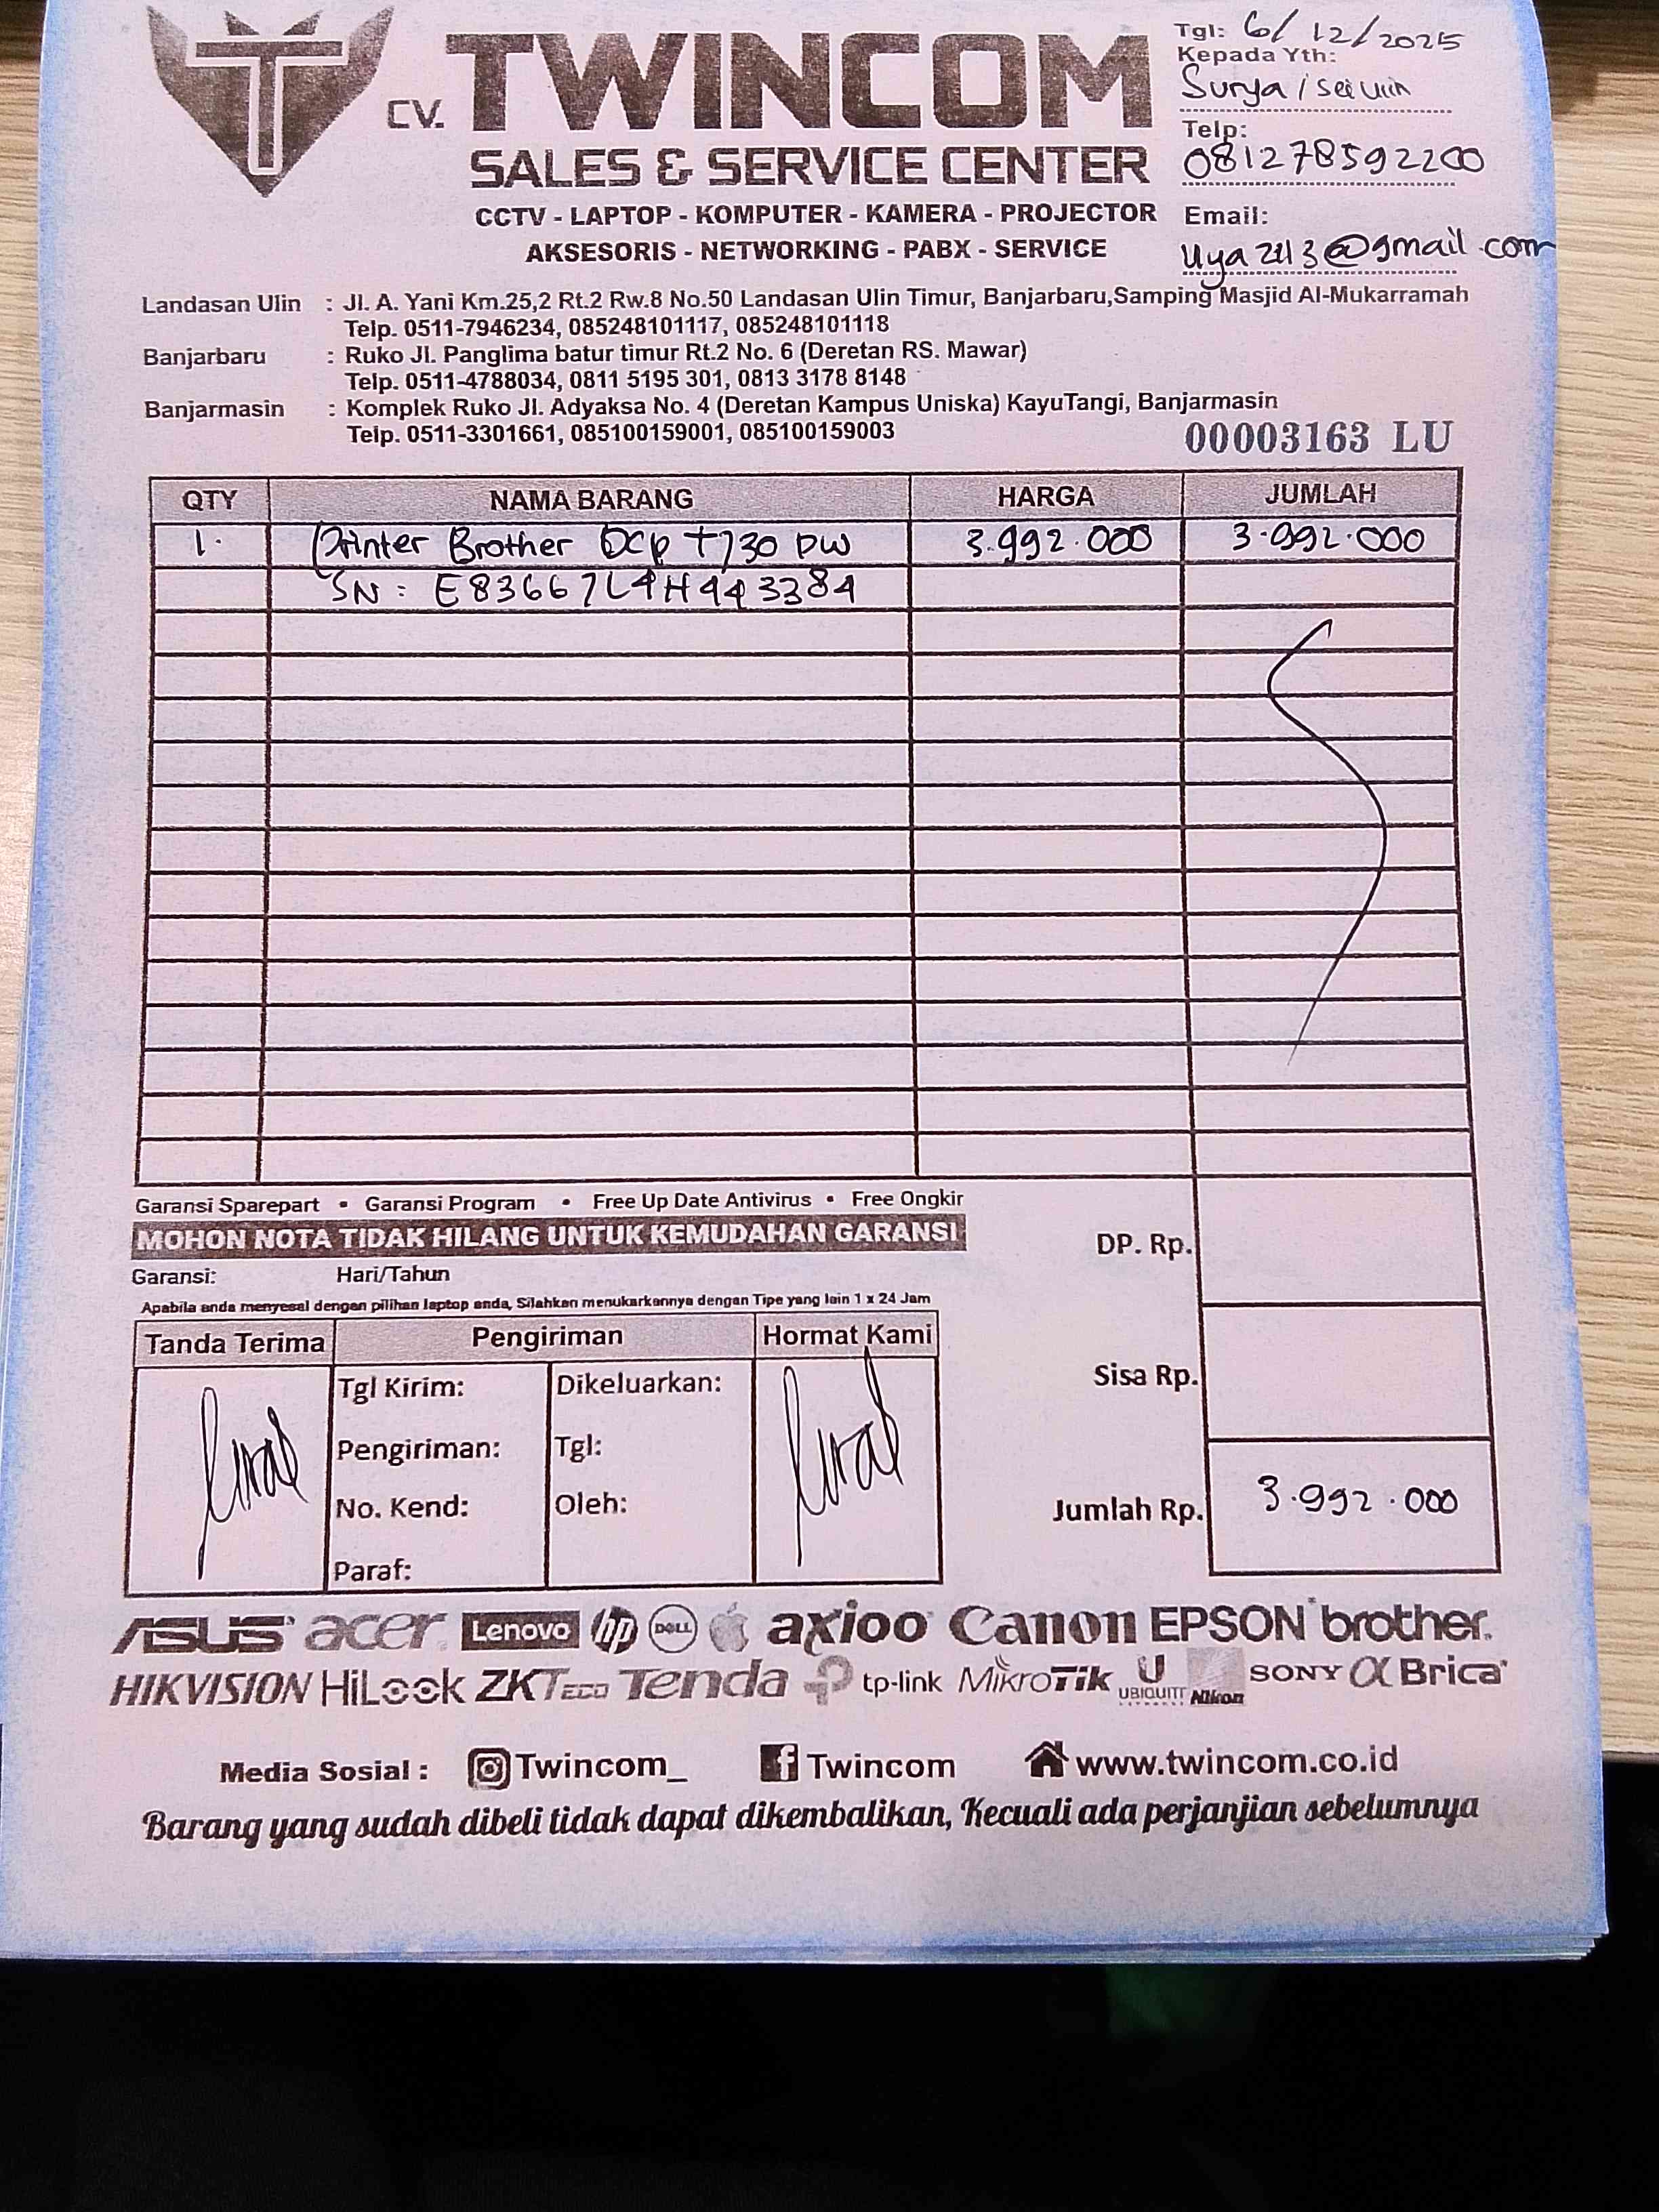 Tgl: 6/12/2025
Kepada Yth:
Surya /
Telp:
081278592200
Email:
CV. TWINCOM
SALES & SERVICE CENTER
CCTV - LAPTOP - KOMPUTER - KAMERA - PROJECTOR
AKSESORIS - NETWORKING - PABX - SERVICE
Landasan Ulin : Jl. A. Yani Km.25,2 Rt.2 Rw.8 No.50 Landasan Ulin Timur, Banjarbaru,Samping Masjid Al-Mukarramah
Telp. 0511-7946234, 085248101117, 085248101118
Banjarbaru : Ruko Jl. Panglima batur timur Rt.2 No. 6 (Deretan RS. Mawar)
Telp. 0511-4788034, 0811 5195 301, 0813 3178 8148
Banjarmasin : Komplek Ruko Jl. Adyaksa No. 4 (Deretan Kampus Uniska) KayuTangi, Banjarmasin
Telp. 0511-3301661, 085100159001, 085100159003
00003163 LU
QTY NAMA BARANG HARGA JUMLAH
1. Printer Brother DCP T730 DW 3.992.000 3.992.000
SN : E83667L4H443384
Garansi Sparepart • Garansi Program • Free Up Date Antivirus • Free Ongkir
MOHON NOTA TIDAK HILANG UNTUK KEMUDAHAN GARANSI
Garansi: Hari/Tahun
Apabila anda menyesal dengan pilihan laptop anda, Silahkan menukarkannya dengan Tipe yang lain 1 x 24 Jam
DP. Rp.
Sisa Rp.
Jumlah Rp. 3.992.000
Tanda Terima Pengiriman Hormat Kami
Tgl Kirim: Dikeluarkan:
Pengiriman: Tgl:
No. Kend: Oleh:
Paraf:
ASUS acer Lenovo hp DELL axioo Canon EPSON brother
HIKVISION HiLook ZKTeco Tenda tp-link MikroTik UBIQUITI Nikon SONY α Brica
Media Sosial : Twincom_ Twincom www.twincom.co.id
Barang yang sudah dibeli tidak dapat dikembalikan, Kecuali ada perjanjian sebelumnya